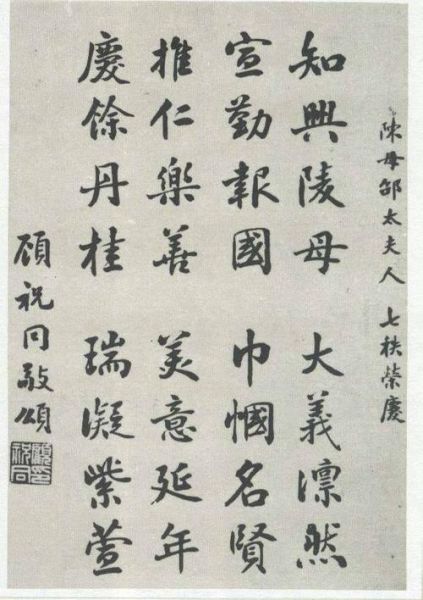 陳母邵太夫人 七秩榮慶
知興陵母 大義凜然
宣勤報國 巾幗名賢
推仁樂善 美意延年
慶餘丹桂 瑞凝紫萱
顧祝同敬頌
顧祝同印